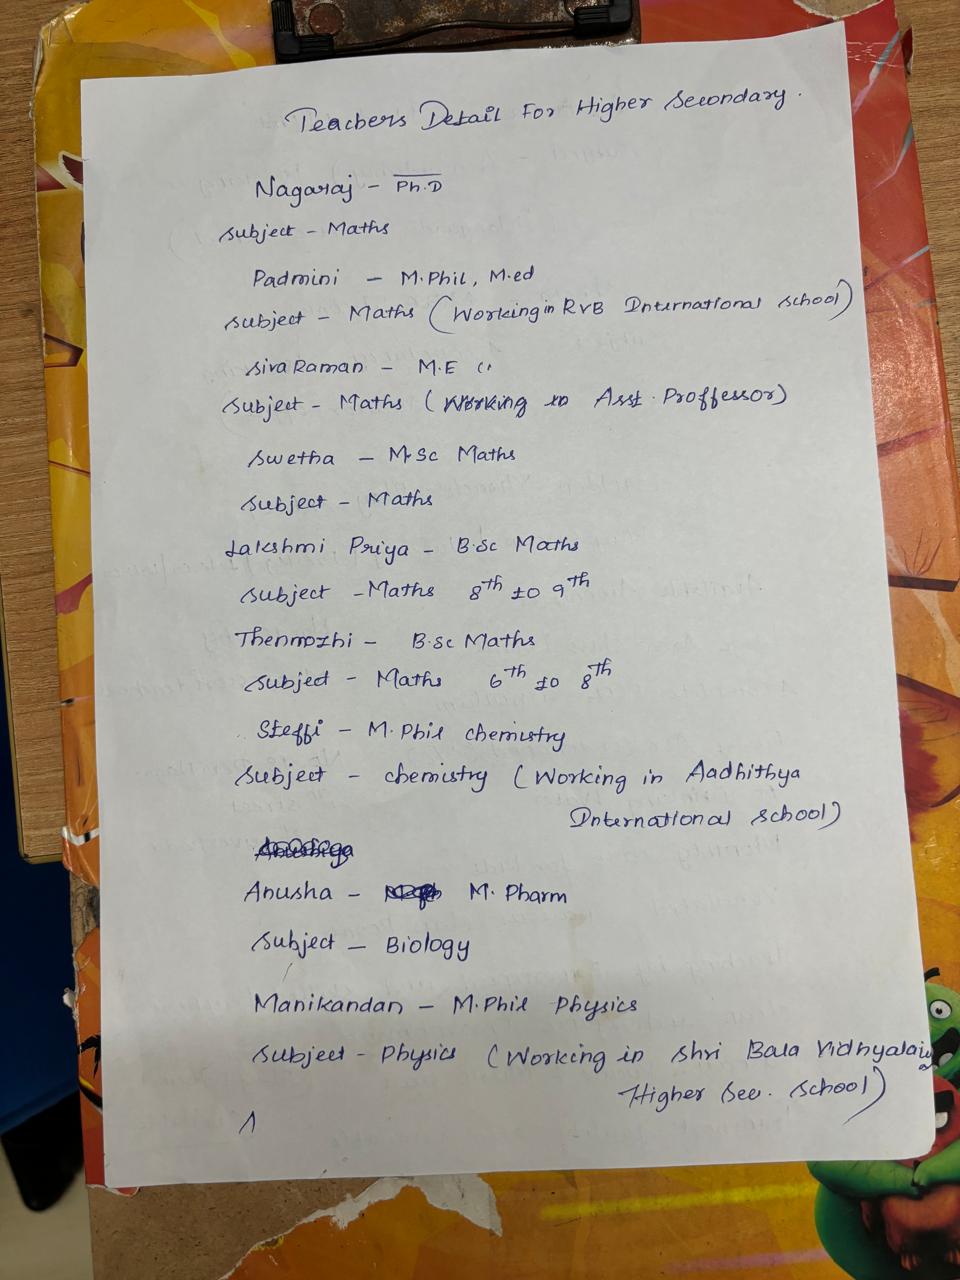 Teachers Detail For Higher Secondary.
Nagaraj - Ph.D
Subject - Maths
Padmini - M.Phil, M.ed
Subject - Maths (Working in RVB International School)
Siva Raman - M.E
Subject - Maths (Working to Asst. Proffessor)
Swetha - M.Sc Maths
Subject - Maths
Lakshmi Priya - B.Sc Maths
Subject - Maths 8th to 9th
Thenmozhi - B.Sc Maths
Subject - Maths 6th to 8th
Steffi - M.Phil chemistry
Subject - chemistry (Working in Aadhithya
International School)
Anusha - M.Pharm
Subject - Biology
Manikandan - M.Phil Physics
Subject - Physics (Working in Shri Bala Vidhyalaya
Higher Sec. School)